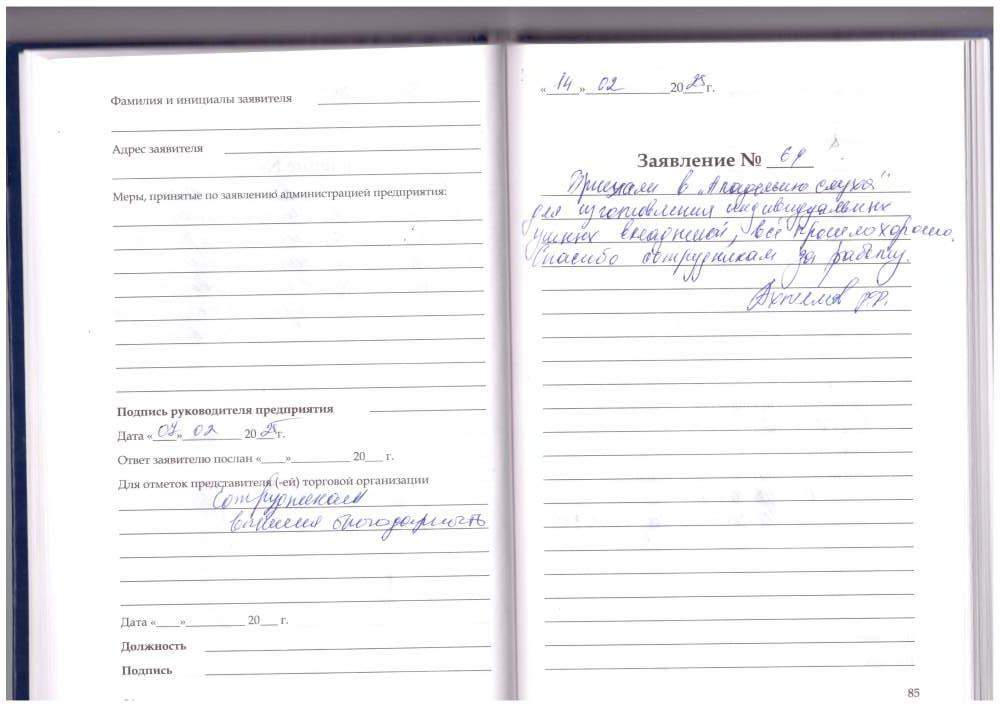 Фамилия и инициалы заявителя
Адрес заявителя
Меры, принятые по заявлению администрацией предприятия:
Подпись руководителя предприятия
Дата «07» 02 2025 г.
Ответ заявителю послан «___»__________ 20___ г.
Для отметок представителя (-ей) торговой организации
Сотрудникам
благодарность
Дата «____»__________ 20___ г.
Должность
Подпись
«14» 02 2025 г.
Заявление №
Приехали в „Академию слуха"
для изготовления индивидуальных
ушных вкладышей, всё прошло хорошо.
Спасибо сотрудникам за работу.
85